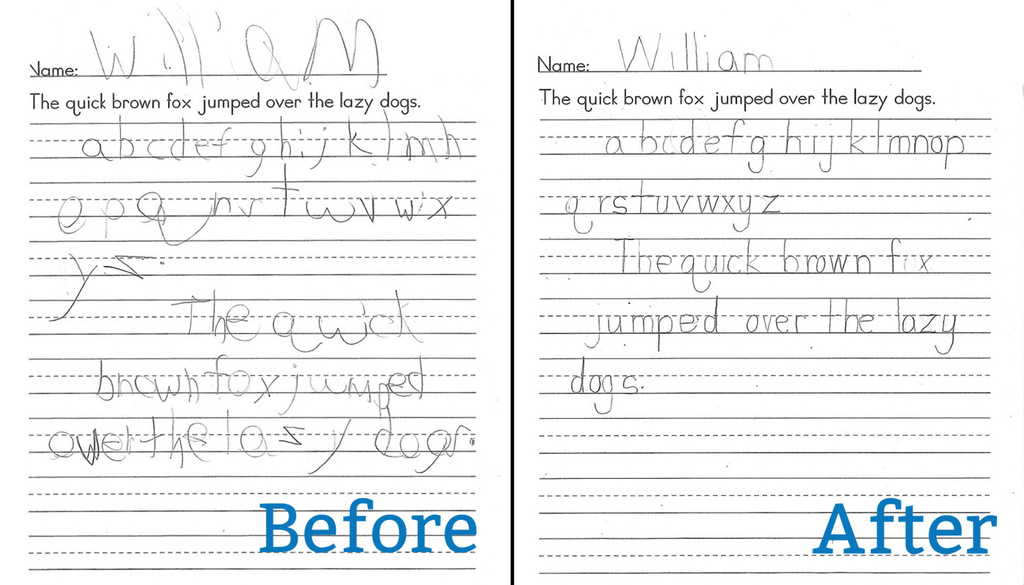 Name: WilliAM
The quick brown fox jumped over the lazy dogs.
abcdefghijklmh
opQ nrtwvwx
yz.
The quick
brownfoxjumped
overthelazy dogr.
Before
Name: William
The quick brown fox jumped over the lazy dogs.
abcdefghijklmnop
qrstuvwxyz
The quick brown fox
jumped over the lazy
dogs.
After